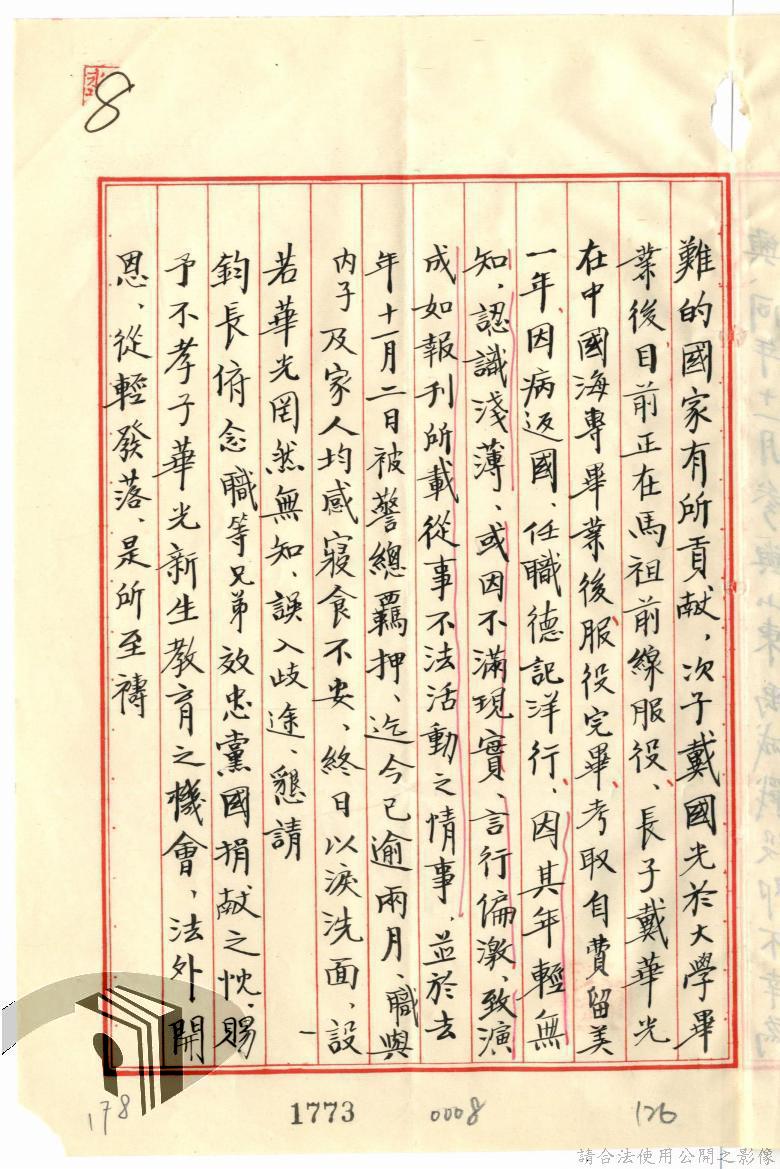 8
難的國家有所貢献，次子戴國光於大學畢
業後目前正在馬祖前線服役、長子戴華光
在中國海專畢業後服役完畢考取自費留美
一年、因病返國、任職德記洋行、因其年輕無
知、認識淺薄、或因不滿現實、言行偏激、致演
成如報刊所載從事不法活動之情事、並於去
年十一月二日被警總羈押、迄今已逾兩月、職與
內子及家人均感寢食不安、終日以淚洗面、設
若華光罔然無知、誤入歧途、懇請
鈞長俯念職等兄弟效忠黨國捐献之忱、賜
予不孝子華光新生教育之機會、法外開
恩、從輕發落、是所至禱
178
1773
0008
126
請合法使用公開之影像